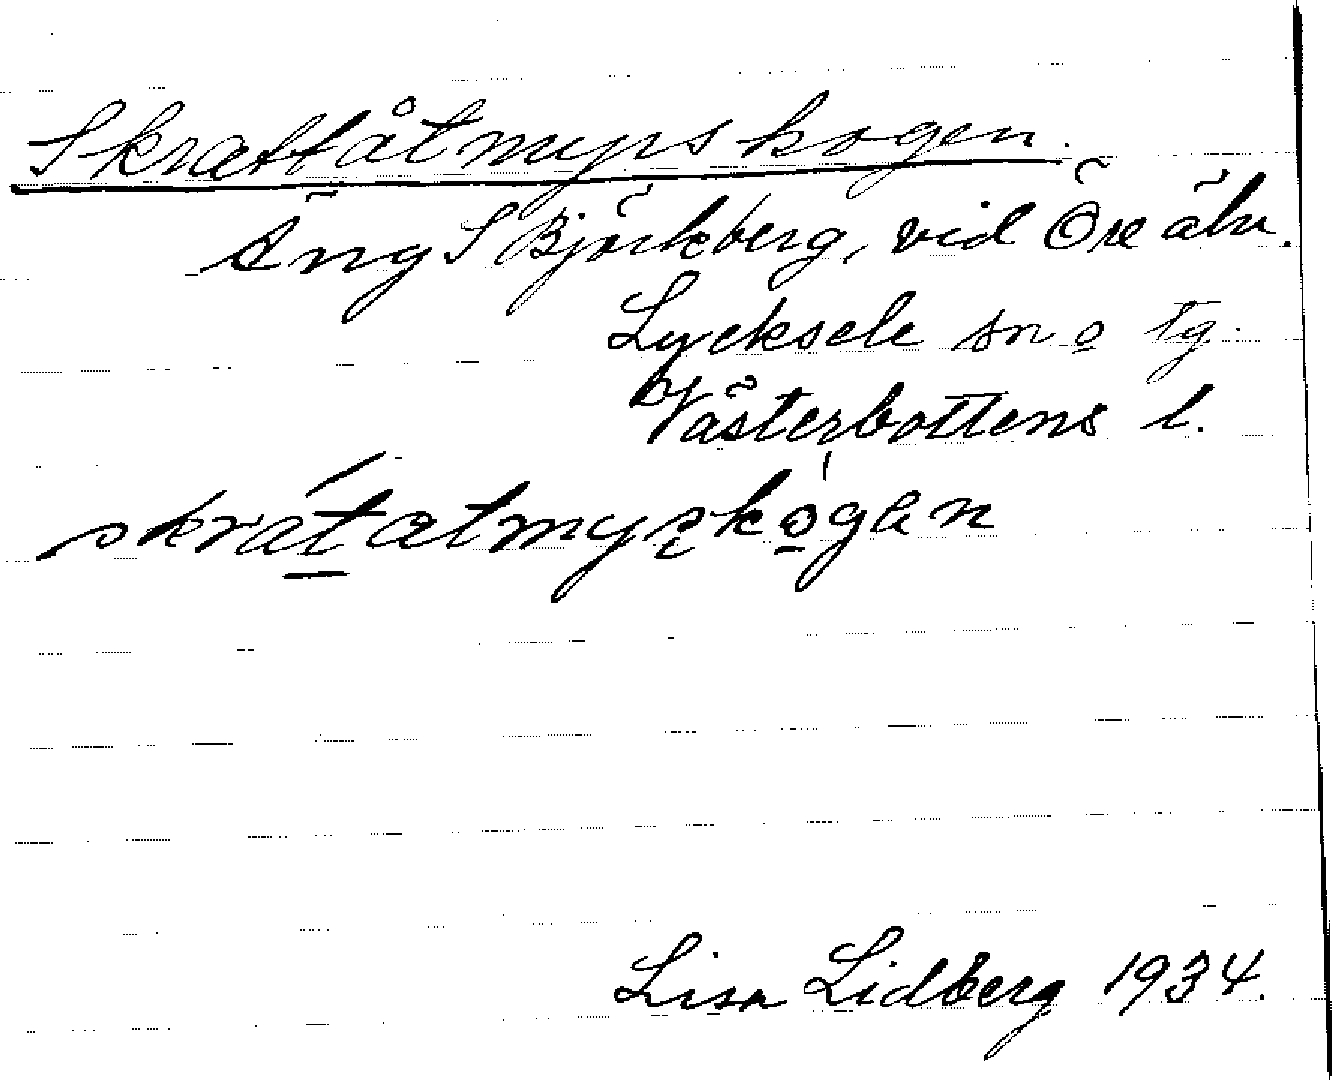 Skrattåtmyrskogen.
äng S Björkberg, vid Öre älv.
Lycksele sn o tg.
Västerbottens l.
skratatmyskogen
Lisa Lidberg 1934.